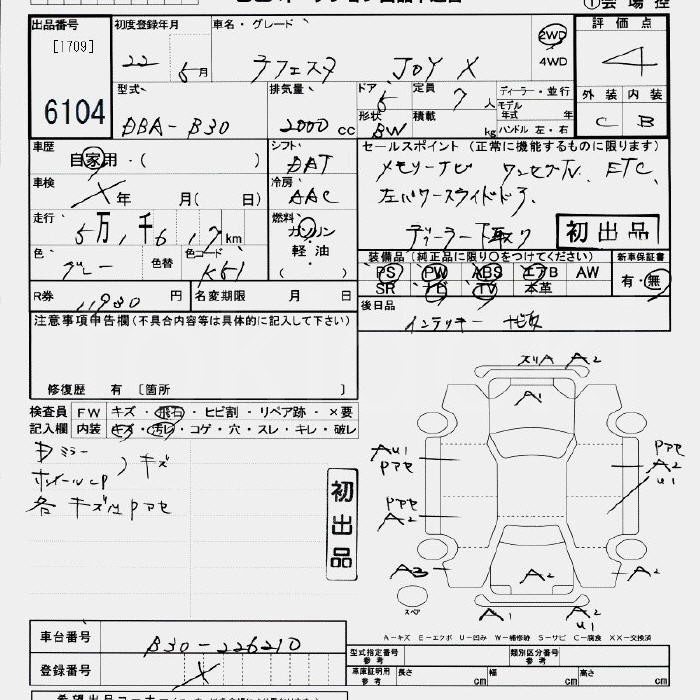 出品番号 初度登録年月 車名・グレード 2WD 評価点
[1709] 22 年 5月 ラフェスタ JOY X 4WD 4
6104 型式 排気量 ドア 定員 ディーラー・並行 外装 内装
DBA-B30 2000cc 5 7人 モデル年式 年 C B
形状 積載 BW kg ハンドル 左・右
車歴 自家用・( ) シフト DAT セールスポイント (正常に機能するものに限ります)
車検 X年 月( 日) 冷房 AAC メモリーナビ ワンセグTV. ETC.
左パワースライドドア.
走行 5万,千6,17km 燃料 ガソリン・軽油( ) ディーラー下取り 初出品
色 グレー 色替 色コード K51 装備品(純正品に限り○をつけてください) 新車保証書
PS PW ABS エアB AW 有・無
SR ナビ TV 本革
R券 11930円 名変期限 月 日 後日品
インテリキー
注意事項申告欄(不具合内容等は具体的に記入して下さい)
修復歴 有 [箇所 ]
検査員 FW キズ・飛石・ヒビ割・リペア跡・×要
記入欄 内装 キズ・汚れ・コゲ・穴・スレ・キレ・破レ
ドミラー
ホイールcP ) キズ
各 キズ
初出品
スリA A2
A1
AU1
A2
U1
A2
A3
A2
A2
A2
A2
U1
スペア
A-キズ E-エクボ U-凹み W-補修跡 S-サビ C-腐食 XX-交換済
車台番号 B30-226210
登録番号 X
型式指定番号 参考 類別区分番号 参考
車庫証明用 参考 長さ cm 幅 cm 高さ cm